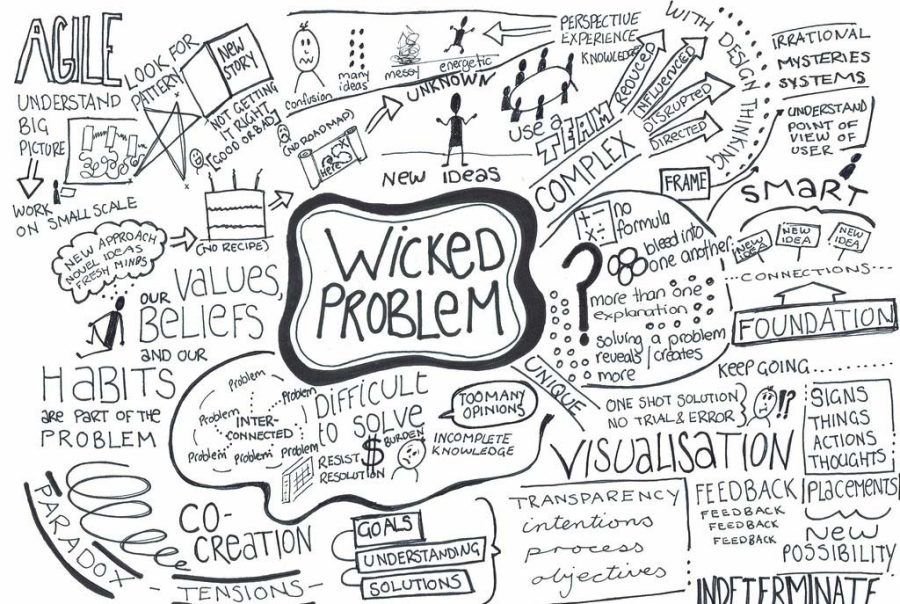 AGILE
UNDERSTAND
BIG
PICTURE
WORK
ON SMALL SCALE
LOOK FOR
PATTERN
NEW
STORY
NOT GETTING
IT RIGHT
(GOOD OR BAD)
(NO RECIPE)
(NO ROADMAP)
Here
confusion
many
ideas
messy
energetic
UNKNOWN
NEW IDEAS
PERSPECTIVE
EXPERIENCE
KNOWLEDGE
USE a
TEAM
COMPLEX
REDUCED
INFLUENCED
DISRUPTED
DIRECTED
WITH DESIGN THINKING
IRRATIONAL
MYSTERIES
SYSTEMS
UNDERSTAND
POINT OF
VIEW OF
USER
FRAME
SMART
NEW
IDEA
NEW
IDEA
NEW
IDEA
...CONNECTIONS...
FOUNDATION
KEEP GOING..........
WICKED
PROBLEM
+ -
x ÷
no
formula
bleed into
one another
?
more than one
explanation
solving a problem
reveals/creates
more
UNIQUE
ONE SHOT SOLUTION
NO TRIAL & ERROR
!?
SIGNS
THINGS
ACTIONS
THOUGHTS
PLACEMENTS
NEW
POSSIBILITY
NEW APPROACH
NOVEL IDEAS
FRESH MINDS
OUR VALUES,
BELIEFS
AND OUR
HABITS
are PART OF THE
PROBLEM
Problem
Problem
Problem
INTER-
CONNECTED
Problem
Problem
Problem
DIFFICULT
TO SOLVE
RESIST
RESOLUTION
$
BURDEN
TOO MANY
OPINIONS
INCOMPLETE
KNOWLEDGE
PARADOX
CO-
CREATION
- TENSIONS -
GOALS
UNDERSTANDING
SOLUTIONS
VISUALISATION
TRANSPARENCY
intentions
process
objectives
FEEDBACK
FEEDBACK
FEEDBACK
FEEDBACK
INDETERMINATE